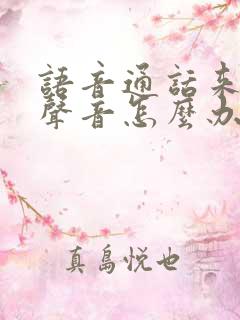 語音通話來
聲音怎麼办
真島悦也